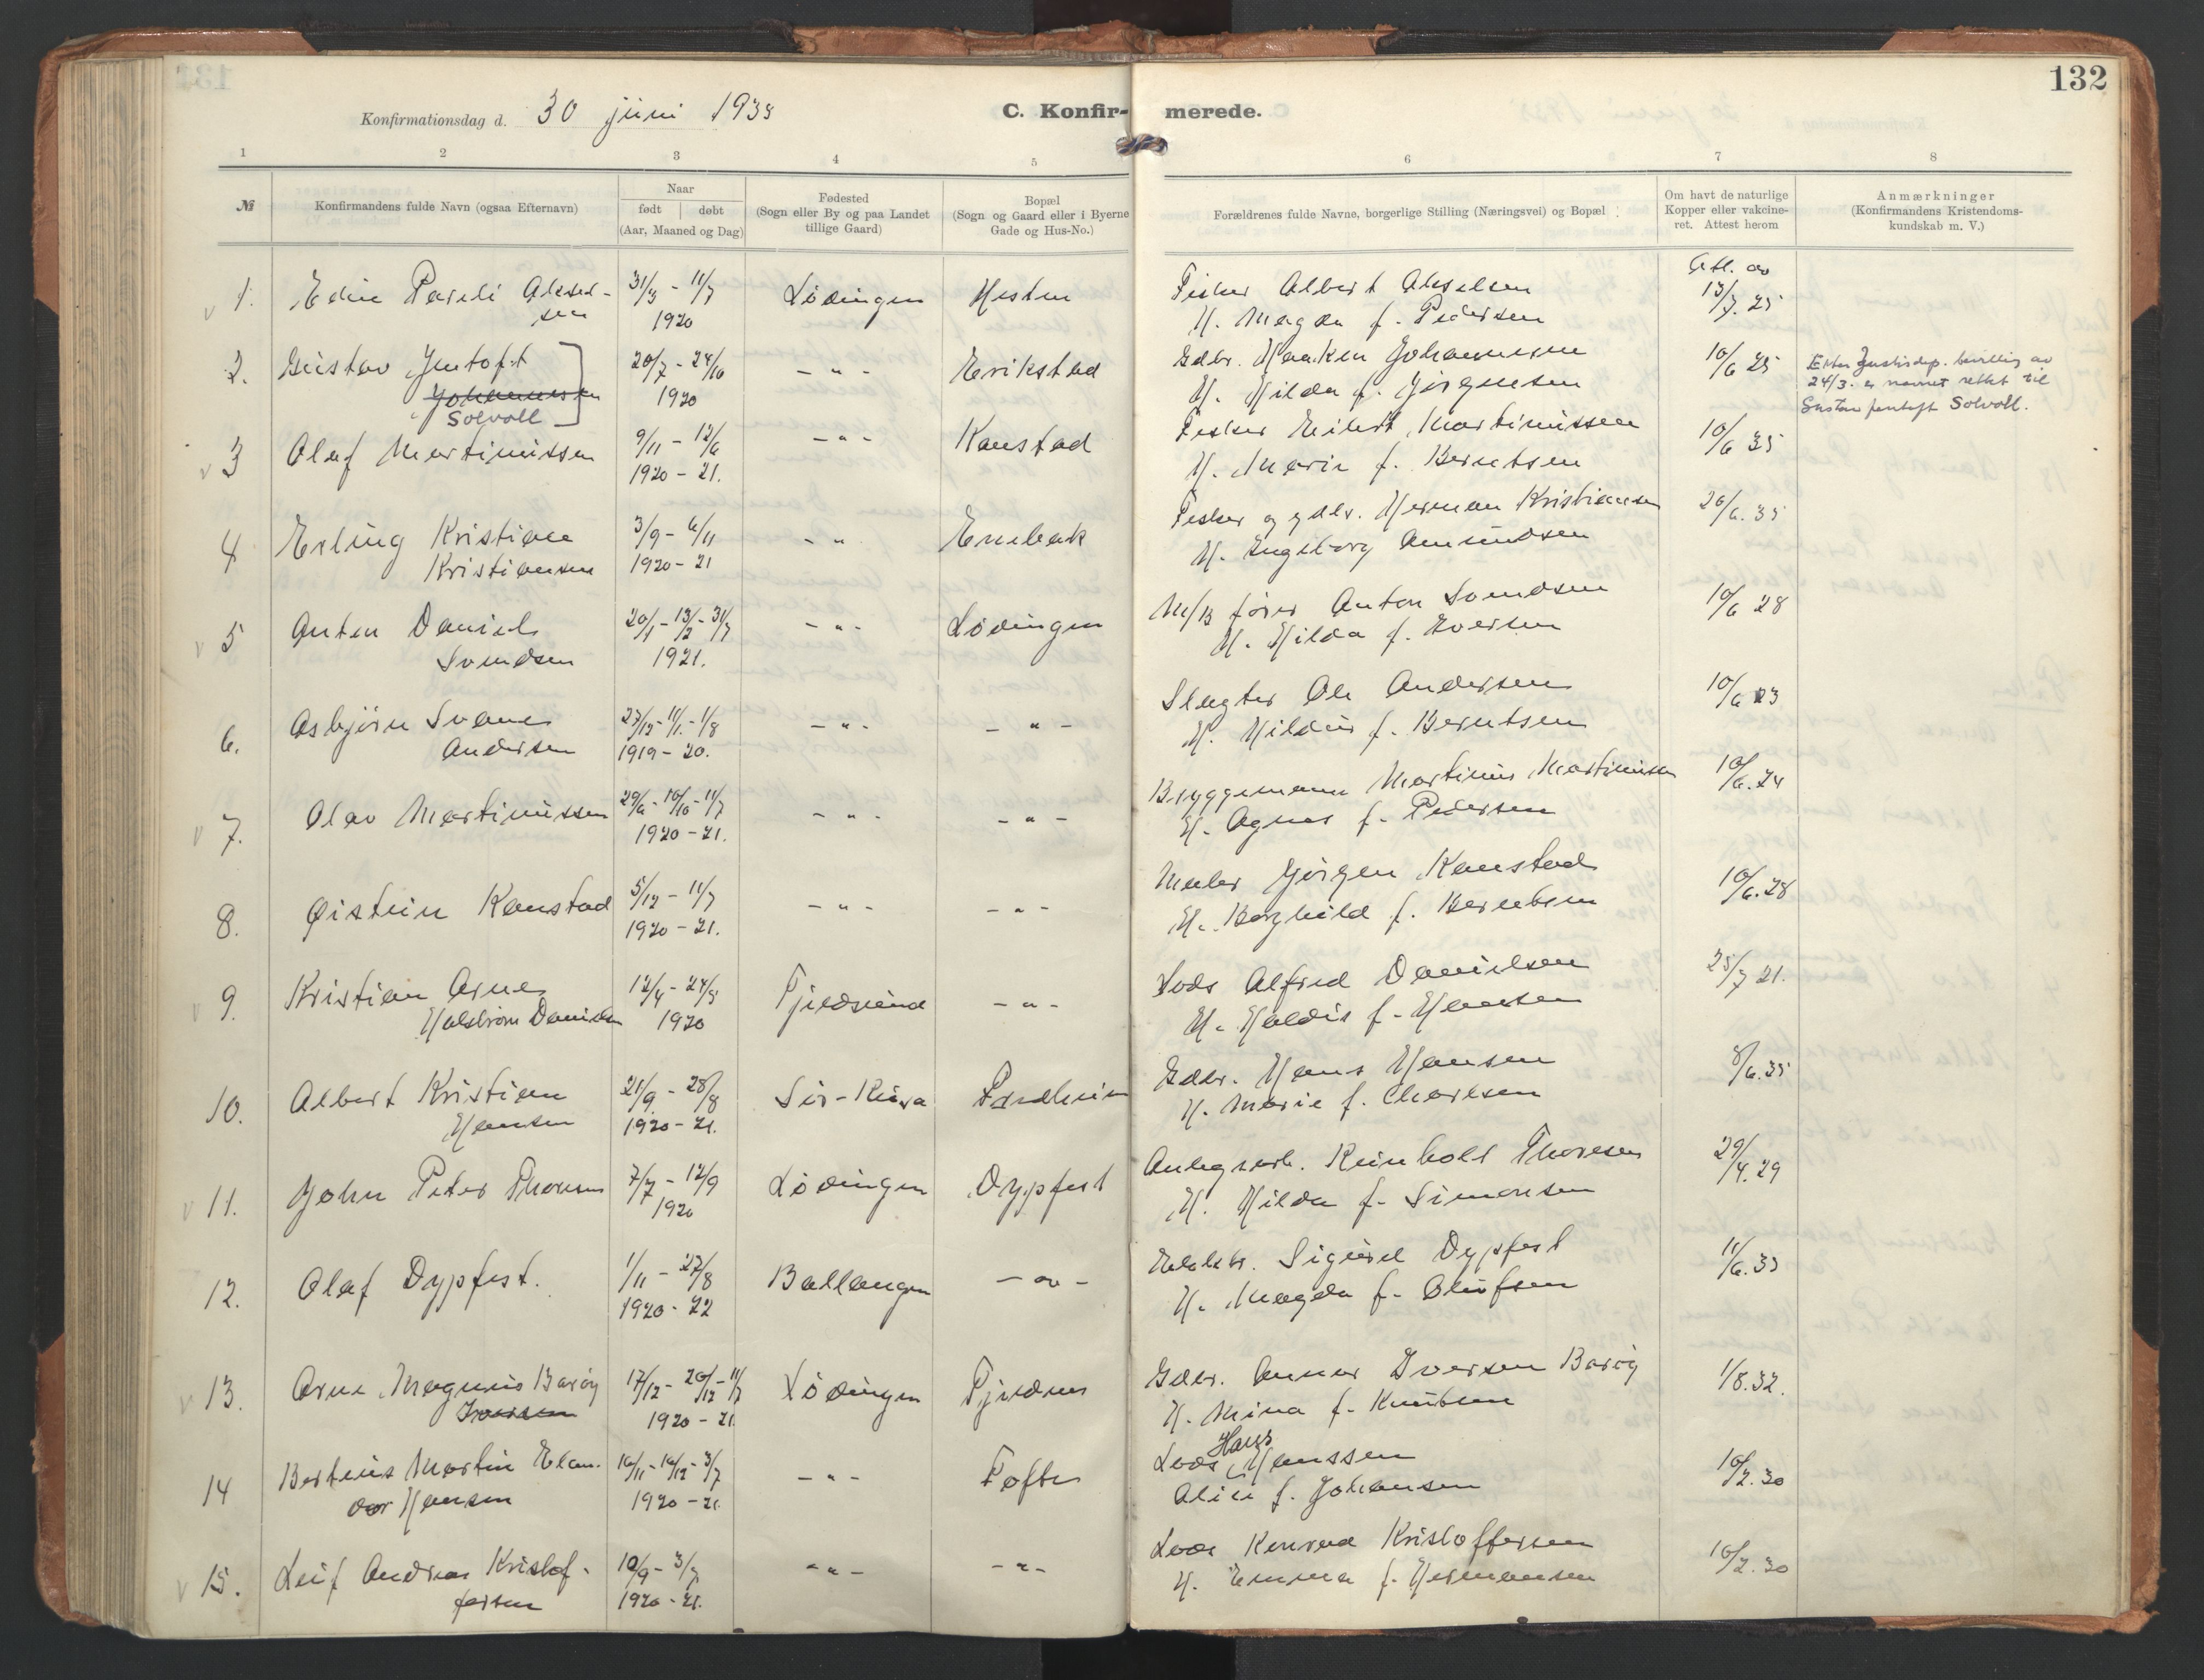 132
Konfirmationsdag d. 30 juni 1935
C. Konfir-merede.
1 2 3 4 5 6 7 8
№
Konfirmandens fulde Navn (ogsaa Efternavn)
Naar
født døbt
(Aar, Maaned og Dag)
Fødested
(Sogn eller By og paa Landet
tillige Gaard)
Bopæl
(Sogn og Gaard eller i Byerne
Gade og Hus-No.)
Forældrenes fulde Navne, borgerlige Stilling (Næringsvei) og Bopæl
Om havt de naturlige
Kopper eller vakcine-
ret. Attest herom
Anmærkninger
(Konfirmandens Kristendoms-
kundskab m. V.)
1. Edin Pareli Aksel- 31/3 - 11/7 Lødingen Hesten Fisker Albert Akselsen Att. av 13/7. 25
sen 1920 H. Magda f. Pedersen
2. Gustav Jentoft 20/7 - 24/10 - " - Erikstad Gdbr. Haakon Johannesen 10/6 25
Johannessen 1920 H. Hilda f. Jørgensen
Solvoll
Efter Justisdep. bevilling av
24/3. er navnet rettet til
Gustav Jentoft Solvoll.
3 Olaf Martinussen 9/11 - 12/6 - " - Kanstad Fisker Eilert Martinussen 10/6 35
1920 - 21. H. Marie f. Berntsen
4 Erling Kristian 3/9 - 6/11 - " - Enebak Fisker og gdbr. Herman Kristiansen 26/6. 35
Kristiansen 1920 - 21 H. Ingeborg Amundsen
5 Anton Daniel 20/1 - 13/2 - 31/7 - " - Lødingen M/B fører Anton Svendsen 10/6 28
Svendsen 1921. H. Hilda f. Iversen
6. Asbjørn Svane 27/12 - 11/1 - 1/8 - " - - " - Slagter Ole Andersen 10/6 23
Andersen 1919 - 20. H. Hildur f. Berntsen
7. Olav Martinussen 29/6 - 10/10 - 11/7 - " - - " - Bryggemann Martinus Martinussen 10/6. 24
1920 - 21. H. Agnes f. Pedersen
8. Øistein Kanstad 5/12 - 11/7 - " - - " - Maler Jørgen Kanstad 10/6. 28
1920 - 21. H. Borghild f. Berntsen
9. Kristian Arne 12/4 - 24/5 Fjeldsund - " - Lods Alfred Danielsen 25/7 21.
Halstrøm Danielsen 1920 H. Haldis f. Hansen
10. Albert Kristian 21/9 - 28/8 Sør-Reisa Gdbr. Hans Hansen 8/6. 35
Hansen 1920 - 21. H. Marie f. Charlsen
11. John Peter Thoresen 7/7 - 12/9 Lødingen Dypfest Anlegsarb. Reinholt Thoresen 29/4. 29
1920 H. Hilda f. Simonsen
12. Olaf Dypfest. 1/11 - 27/8 Ballangen - " - Sigurd Dypfest 11/6. 35
1920 - 22 H. Magda f. Olufsen
13. Arne Magnus Barøy 17/12 - 20/12 - 11/7 Lødingen Fjeldnes Gdbr. Anner Iversen Barøy 1/8. 32.
Iversen 1920 - 21 H. Mina f. Knutsen
14 Berteus Martin Elan- 16/11 - 16/12 - 3/7 - " - Tofte Lods Hans Hanssen 10/2. 30
der Hansen 1920 - 21. Alice f. Johansen
15. Leif Andreas Kristof- 10/9 - 3/7 - " - - " - Lods Konrad Kristoffersen 10/2. 30
fersen 1920 - 21. H. Emma f. Hermansen